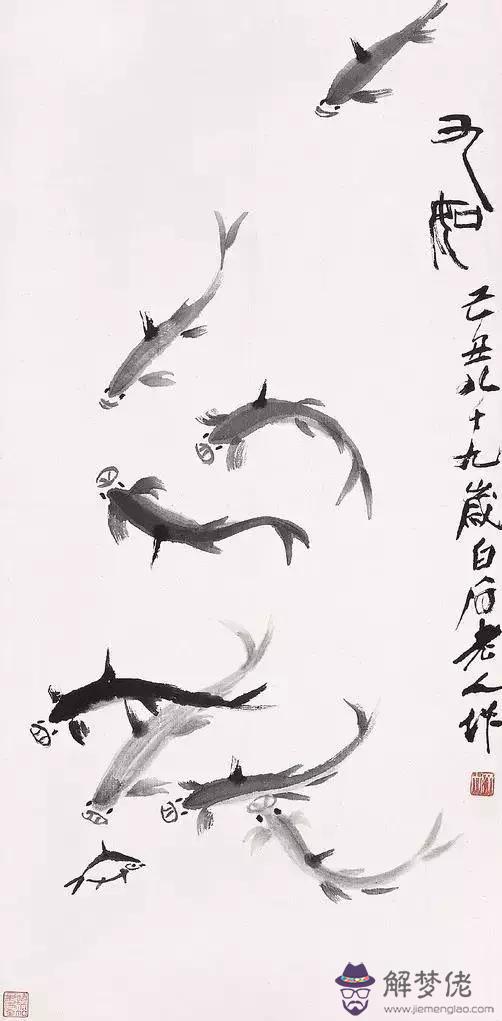 九如
己丑八十九歲白石老人作
解梦佬
www.jiemenglao.com